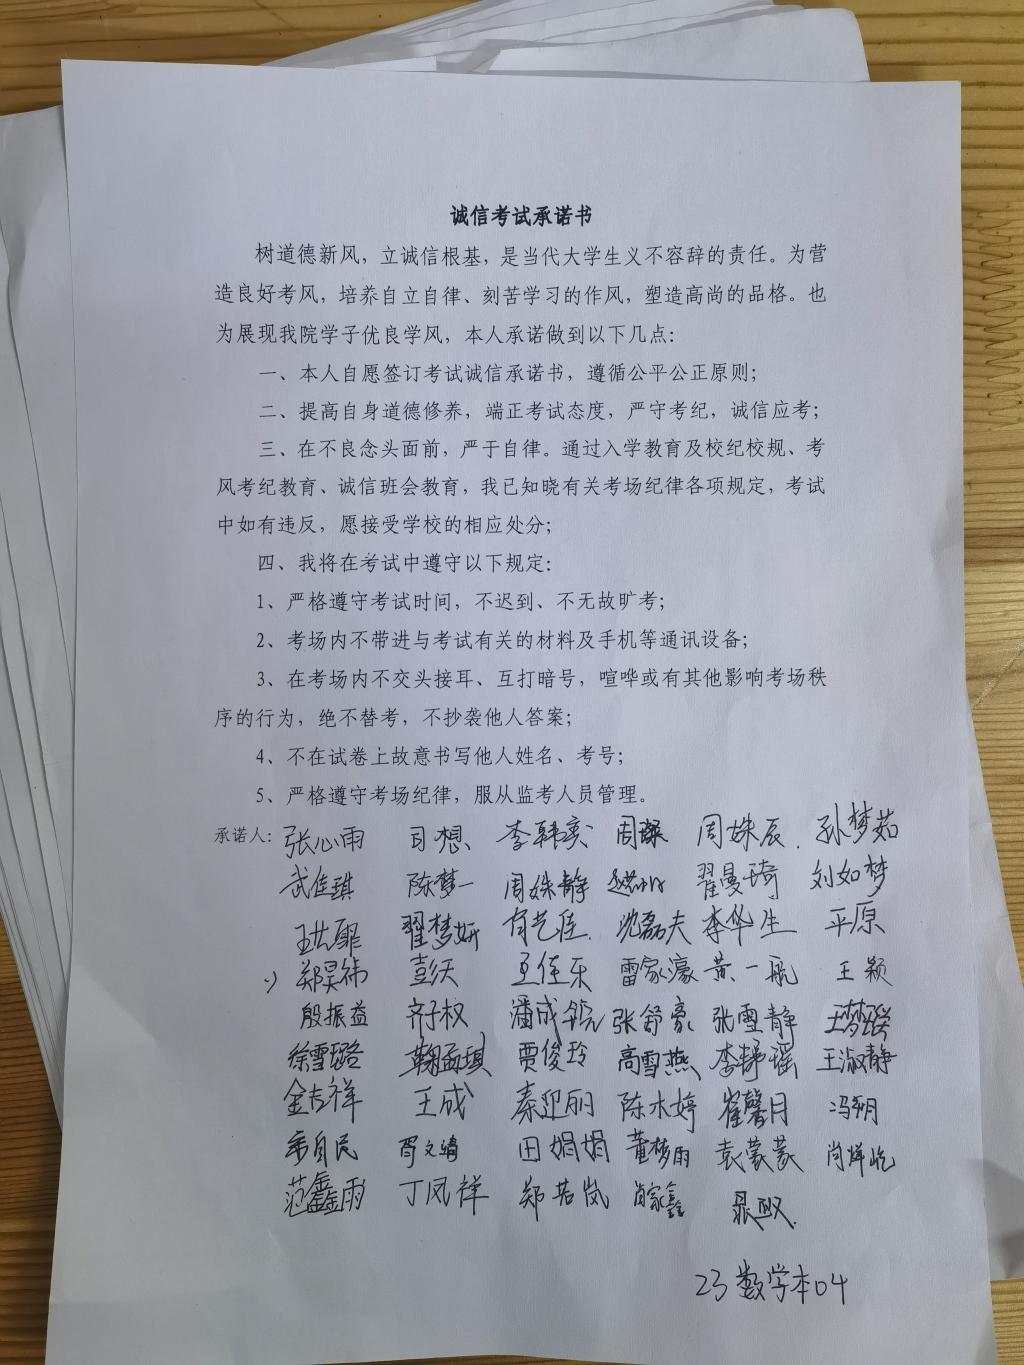 诚信考试承诺书
树道德新风，立诚信根基，是当代大学生义不容辞的责任。为营
造良好考风，培养自立自律、刻苦学习的作风，塑造高尚的品格。也
为展现我院学子优良学风，本人承诺做到以下几点：
一、本人自愿签订考试诚信承诺书，遵循公平公正原则；
二、提高自身道德修养，端正考试态度，严守考纪，诚信应考；
三、在不良念头面前，严于自律。通过入学教育及校纪校规、考
风考纪教育、诚信班会教育，我已知晓有关考场纪律各项规定，考试
中如有违反，愿接受学校的相应处分；
四、我将在考试中遵守以下规定：
1、严格遵守考试时间，不迟到、不无故旷考；
2、考场内不带进与考试有关的材料及手机等通讯设备；
3、在考场内不交头接耳、互打暗号，喧哗或有其他影响考场秩
序的行为，绝不替考，不抄袭他人答案；
4、不在试卷上故意书写他人姓名、考号；
5、严格遵守考场纪律，服从监考人员管理。
承诺人：张心雨 司想 李韩奕 周姝辰 孙梦茹
武佳琪 陈梦一 周姝静 翟曼琦 刘如梦
翟梦妍 肖艺佳 沈磊夫 李华生 平原
郑昊祎 彭天 王佳乐 雷家濠 黄一航 王颖
殷振益 齐子权 张舒豪 张雪静
徐雪璐 鞠孟琪 贾俊玲 高雪燕 李梯瑶 王淑静
金吉祥 王成 秦迎丽 陈木婷 崔馨月 冯朔月
胥文靖 田娟娟 董梦雨 袁蒙蒙 尚烨屹
范鑫雨 丁凤祥 郑若岚 肖家鑫
23数学本04